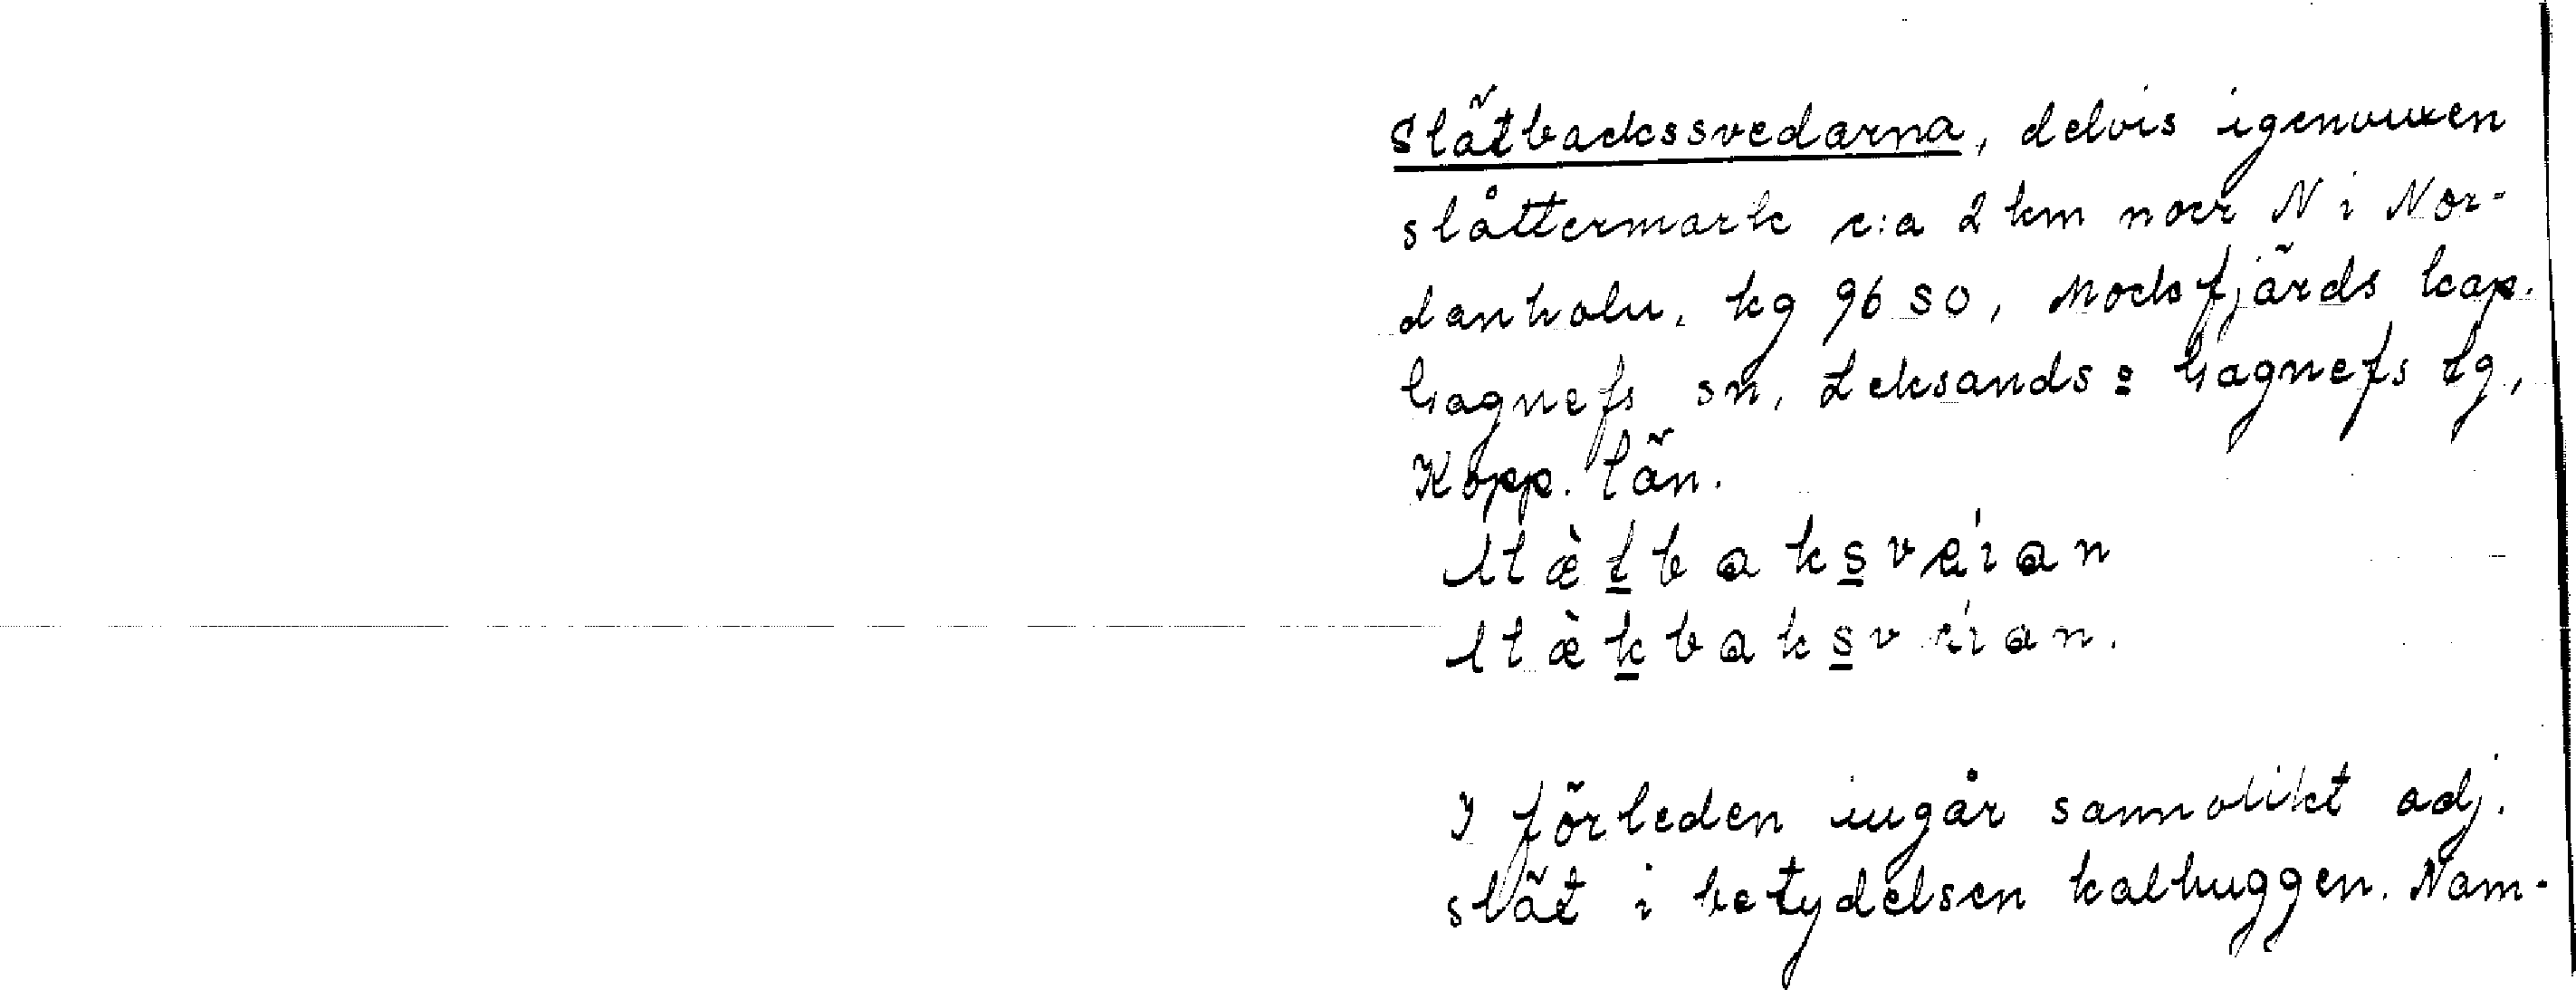 Slätbackssvedarna, delvis igenvuxen
slåttermark c:a 2 km norr N i Nor-
danholn, kg 96 SO, Mockfjärds kap.
Gagnefs sn, Leksands o Gagnefs tg,
Kopp. län.
slætbaksveian
slækbaksveian.
I förleden ingår sannolikt adj.
slät i betydelsen kalhuggen. Nam-